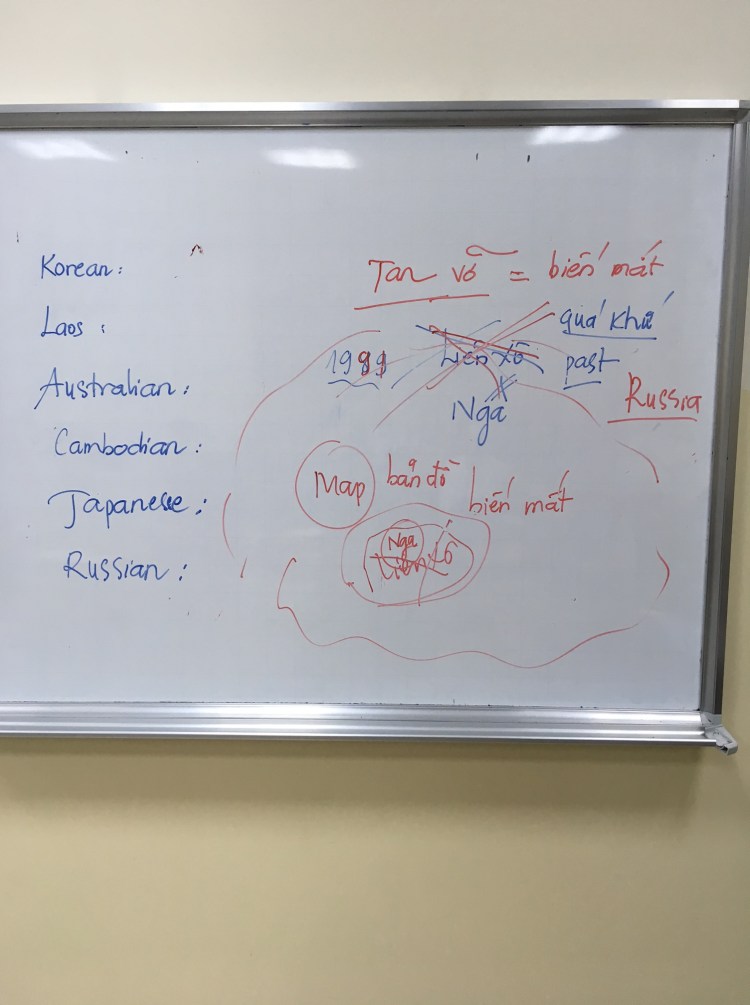 Korean:
Laos:
Australian:
Cambodian:
Japanese:
Russian:
Tan vỡ = biến mất
quá khứ
1989 Liên Xô past
Nga Russia
Map bản đồ biến mất
Nga
Liên Xô